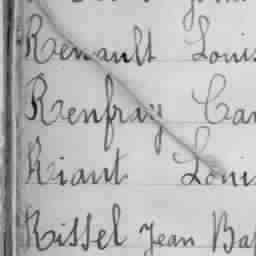 Renault Louis
Renfray Cam
Riant Louis
Rissel Jean Bap